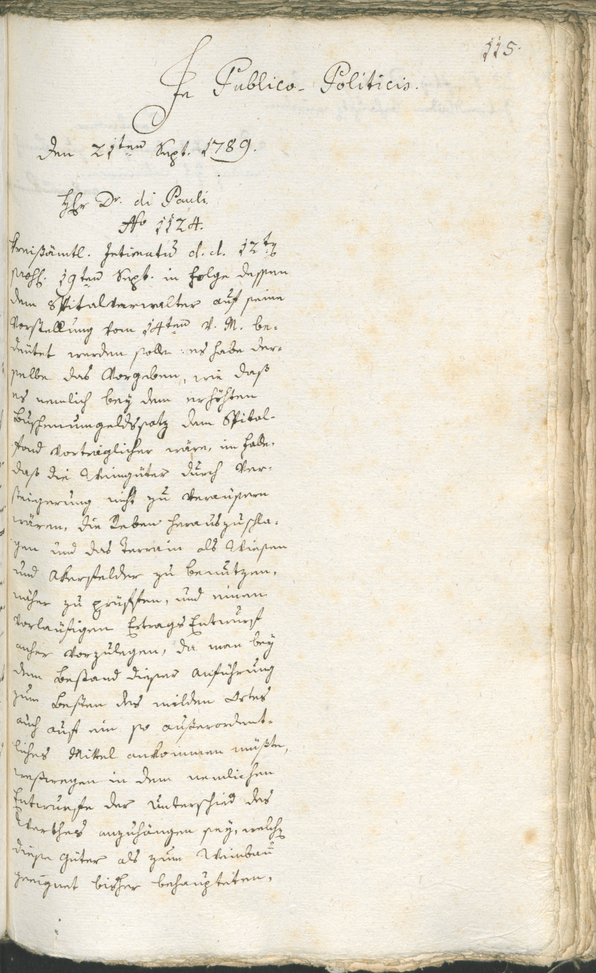 115.
In Publico-Politicis.
den 21ten Sept. 1789.
Hr Dr. di Pauli
No 1124.
Kreißämtl. Intimatum d. d. 12tn
praes. 19ten Sept. in Folge dessen
dem Spitalverwalter auf seine
Vorstellung vom 14ten v. M. be-
deutet werden solle: er habe der-
selbe das Vorgeben, wie daß
es nemlich bey dem erhöhten
Buschenumgeldssatz dem Spital-
fond vorträglicher wäre, im Falle,
daß die Weingüter durch Ver-
steigerung nicht zu veräusern
wären, die Reben herauszuschla-
gen und das Terrain als Wiesen
und Akerfelder zu benutzen,
näher zu prüffen, und einen
vorläufigen Ertrags Entwurf
anher vorzulegen, da man bey
dem Bestand dieser Anführung
zum Besten des milden Ortes
auch auf ein so außerordent-
liches Mittel ankommen müßte,
weßwegen in dem nemlichen
Entwurfe der Unterschied des
Werthes anzuhängen sey, welch
diese Güter als zum Weinbau
geeignet bisher behaupteten,